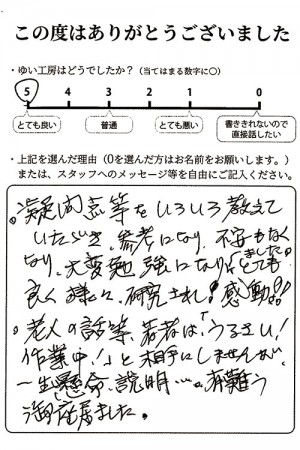 この度はありがとうございました
・ゆい工房はどうでしたか？（当てはまる数字に○）
5 4 3 2 1 0
とても良い 普通 とても悪い 書ききれないので直接話したい
・上記を選んだ理由（0を選んだ方はお名前をお願いします。）
または、スタッフへのメッセージ等を自由にご記入ください。
。疑問点等をいろいろ教えて
いただき、参考になり、不安もなく
なり、大変勉強になりました。とても
良く様々、研究され！感動！！
。老人の話等、若者は、「うるさい！
作業中！」と相手にしませんが、
一生懸命、説明…。有難う
御座居ました。